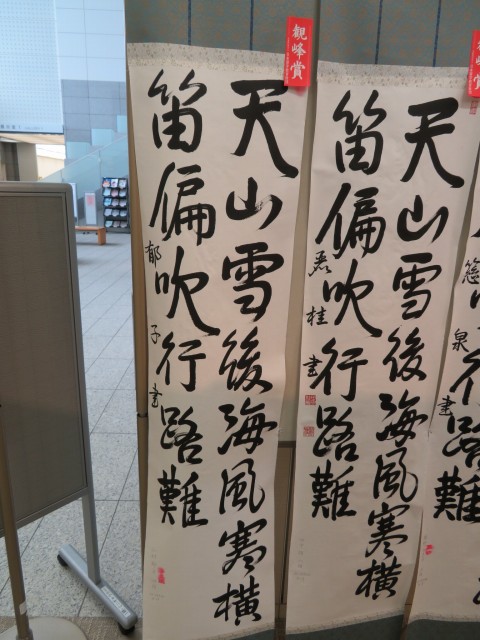 觀峰賞
天山雪後海風寒横
笛偏吹行路難
郁子書
觀峰賞
天山雪後海風寒横
笛偏吹行路難
桂書
路難
泉書